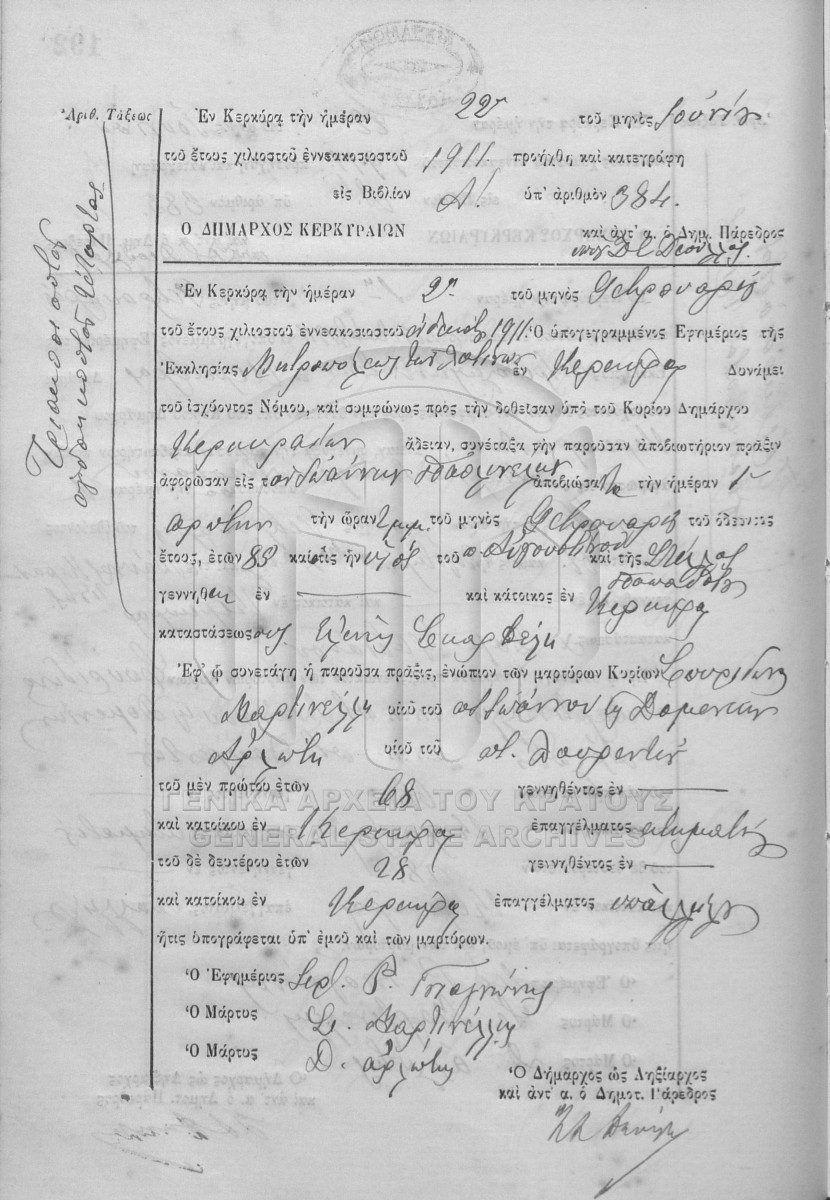 Ἀριθ. Τάξεως
Τριακοσιοστός
ὀγδοηκοστός τέταρτος
Ἐν Κερκύρᾳ τὴν ἡμέραν 22αν τοῦ μηνὸς Ἰουνίου
τοῦ ἔτους χιλιοστοῦ ἐννεακοσιοστοῦ 1911. προήχθη καὶ κατεγράφη
εἰς Βιβλίον Α! ὑπ' ἀριθμὸν 384.
Ο ΔΗΜΑΡΧΟΣ ΚΕΡΚΥΡΑΙΩΝ καὶ ἀντ' α. ὁ Δημ. Πάρεδρος
Ἐν Κερκύρᾳ τὴν ἡμέραν 2αν τοῦ μηνὸς Φεβρουαρίου
τοῦ ἔτους χιλιοστοῦ ἐννεακοσιοστοῦ ἑνδεκάτου 1911. Ὁ ὑπογεγραμμένος Ἐφημέριος τῆς
Ἐκκλησίας Μητροπόλεως τῶν Λατίνων ἐν Κερκύρᾳ Δυνάμει
τοῦ ἰσχύοντος Νόμου, καὶ συμφώνως πρὸς τὴν δοθεῖσαν ὑπὸ τοῦ Κυρίου Δημάρχου
Κερκυραίων ἄδειαν, συνέταξα τὴν παροῦσαν ἀποβιωτήριον πρᾶξιν
ἀφορῶσαν εἰς τὸν Ἰωάννην ἀποβιώσαντα τὴν ἡμέραν 1ην
πρώτην τὴν ὥραν 2 μ.μ. τοῦ μηνὸς Φεβρουαρίου τοῦ ὁδεύοντος
ἔτους, ἐτῶν 83 καὶ ὅστις ἦν υἱὸς τοῦ π. Αὐγουστίνου καὶ τῆς Στέλλας
γεννηθεὶς ἐν — καὶ κάτοικος ἐν Κερκύρᾳ
καταστάσεως συζ. Ἑλένης Σκαρβέλη
Ἐφ' ᾧ συνετάγη ἡ παροῦσα πρᾶξις, ἐνώπιον τῶν μαρτύρων Κυρίων Σπυρίδωνος
Μαρτινέλλη υἱοῦ τοῦ ποτ. Ἰωάννου καὶ Δομενίκου
Ἀρλώτη υἱοῦ τοῦ ποτ. Λαυρεντίου
τοῦ μὲν πρώτου ἐτῶν 68 γεννηθέντος ἐν —
καὶ κατοίκου ἐν Κερκύρᾳ ἐπαγγέλματος κτηματίου
τοῦ δὲ δευτέρου ἐτῶν 28 γεννηθέντος ἐν —
καὶ κατοίκου ἐν Κερκύρᾳ ἐπαγγέλματος ὑπαλλήλου
ἥτις ὑπογράφεται ὑπ' ἐμοῦ καὶ τῶν μαρτύρων.
Ὁ Ἐφημέριος
Ὁ Μάρτυς Σ. Μαρτινέλλης
Ὁ Μάρτυς Δ. Ἀρλώτης
Ὁ Δήμαρχος ὡς Ληξίαρχος
καὶ ἀντ' α. ὁ Δημοτ. Πάρεδρος
ΓΕΝΙΚΑ ΑΡΧΕΙΑ ΤΟΥ ΚΡΑΤΟΥΣ
GENERAL STATE ARCHIVES